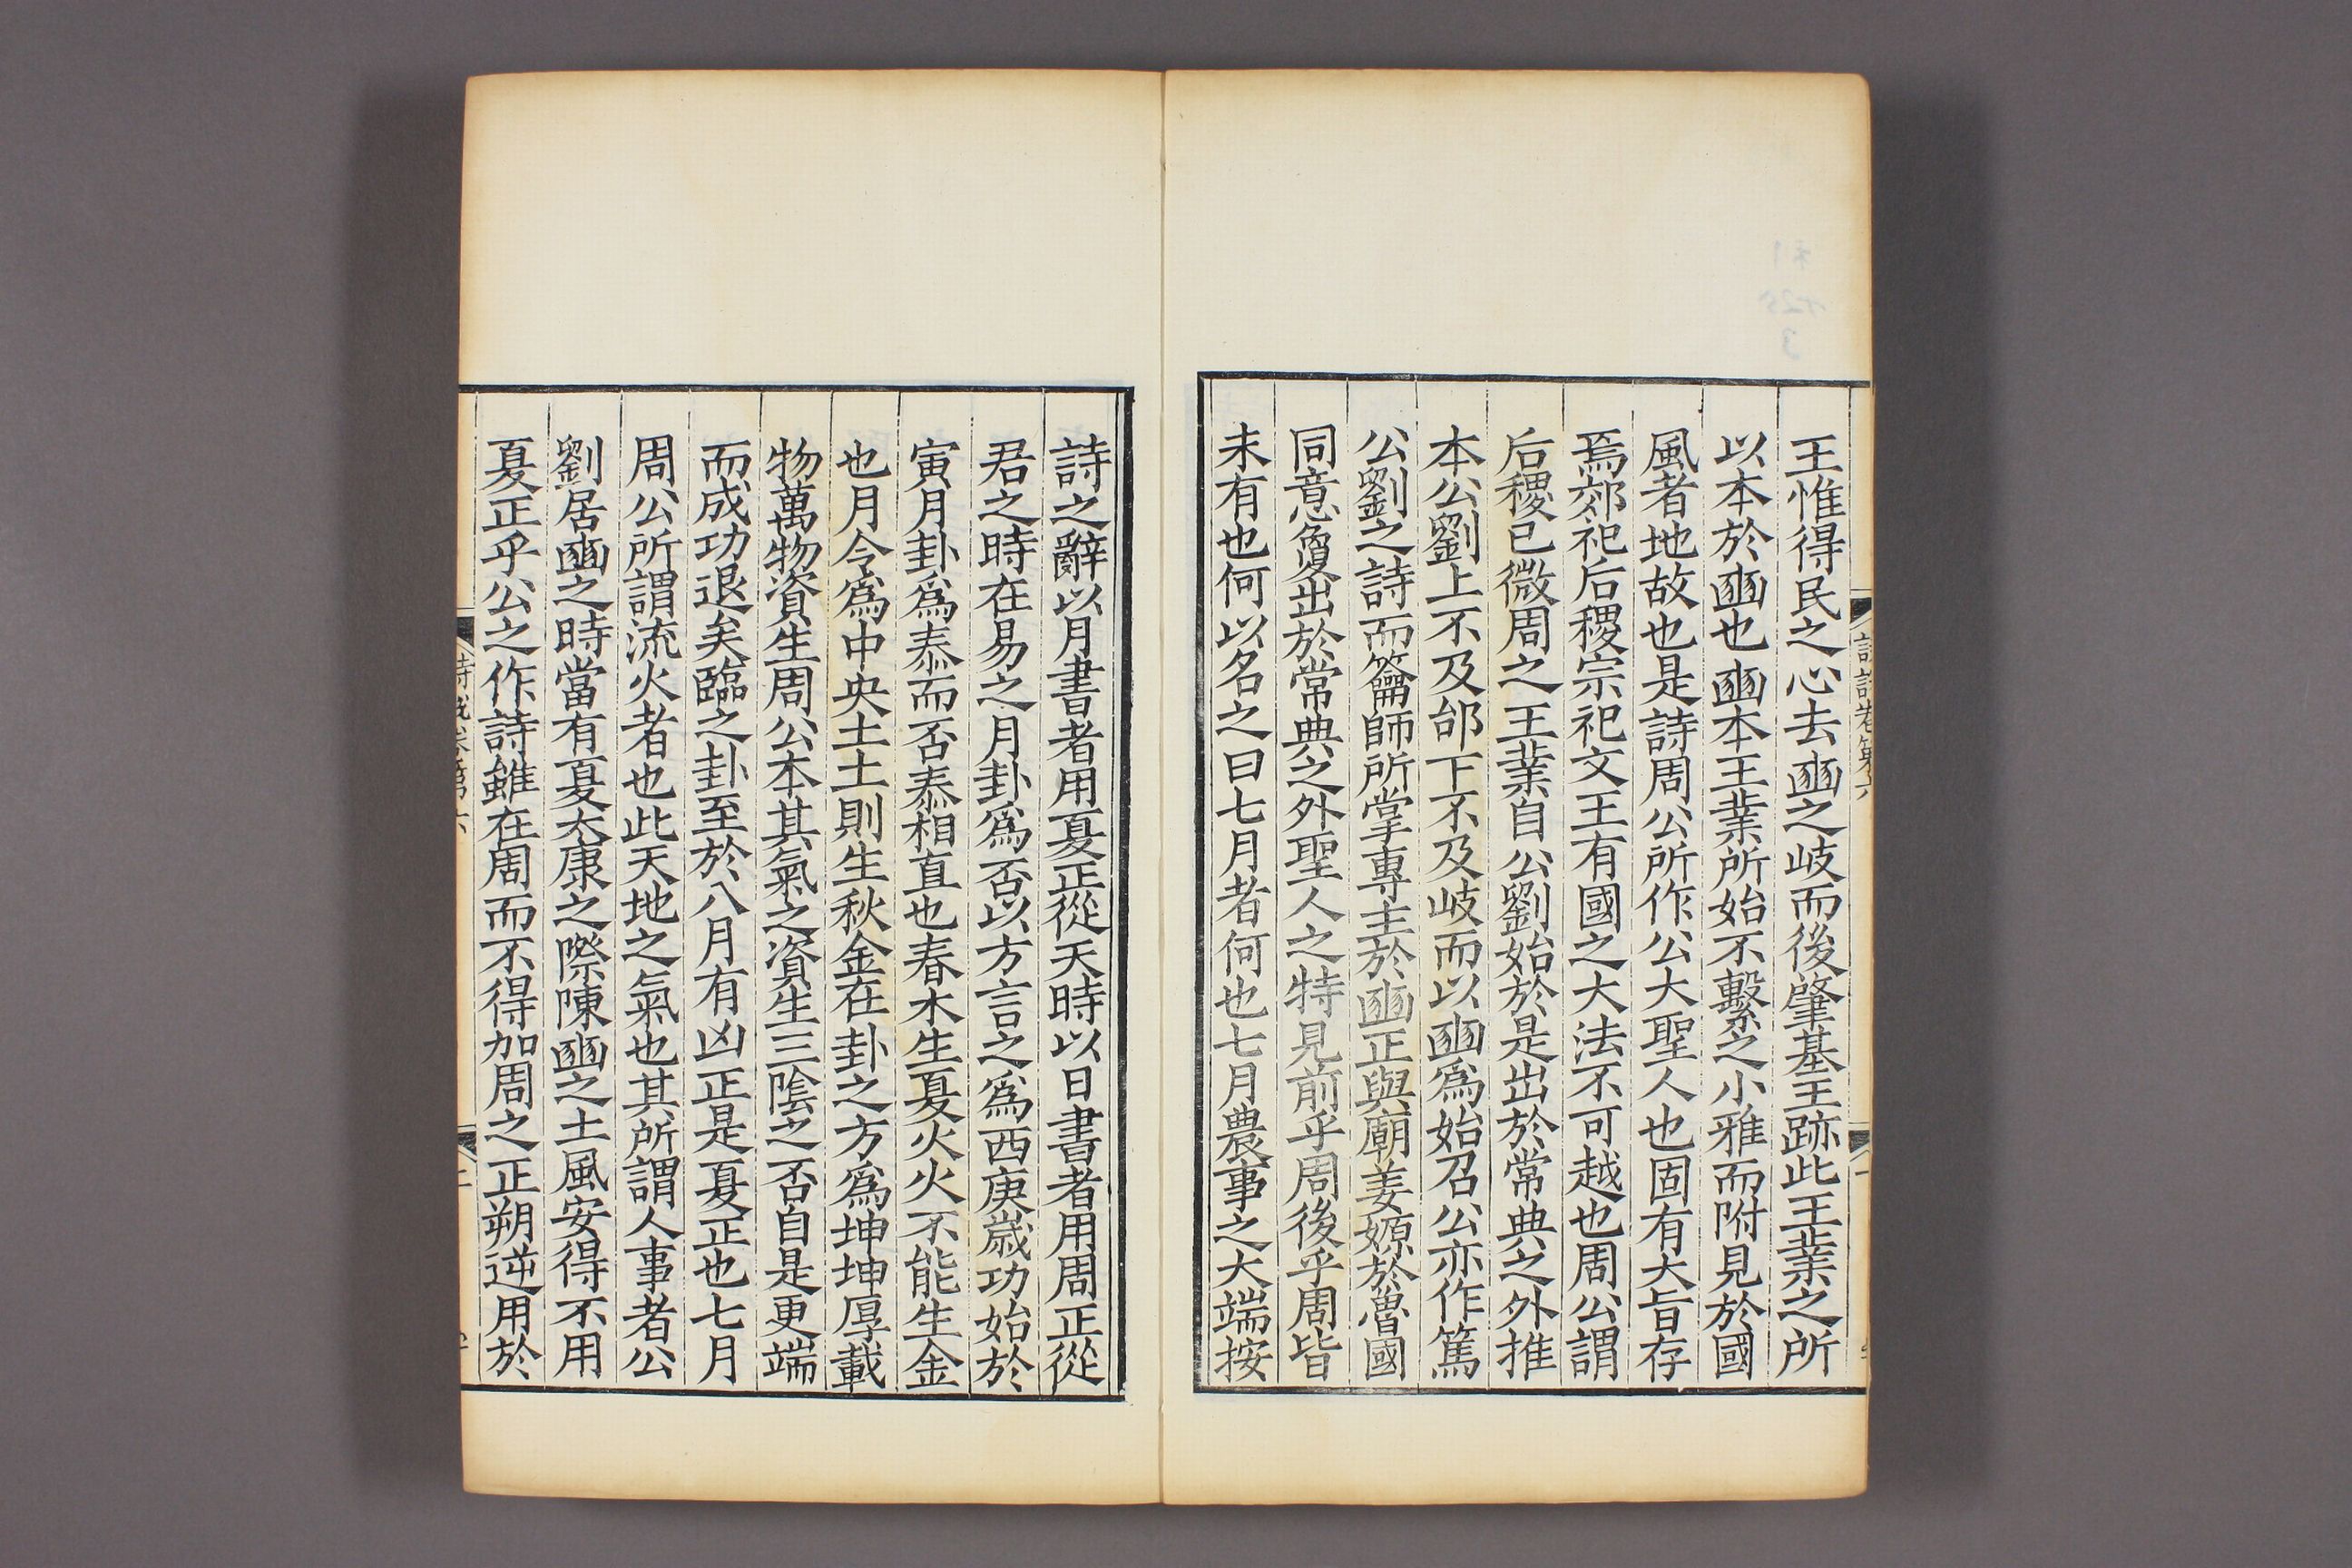 王惟得民之心去豳之岐而後肇基王跡此王業之所
以本於豳也豳本王業所始不繫之小雅而附見於國
風者地故也是詩周公所作公大聖人也固有大旨存
焉郊祀后稷宗祀文王有國之大法不可越也周公謂
后稷已微周之王業自公劉始於是出於常典之外推
本公劉上不及邰下不及岐而以豳爲始召公亦作篤
公劉之詩而籥師所掌專主於豳正與廟姜嫄於魯國
同意敻出於常典之外聖人之特見前乎周後乎周皆
未有也何以名之曰七月者何也七月農事之大端按
詩之辭以月書者用夏正從天時以日書者用周正從
君之時在易之月卦爲否以方言之爲西庚歲功始於
寅月卦爲泰而否泰相直也春木生夏火火不能生金
也月令爲中央土土則生秋金在卦之方爲坤坤厚載
物萬物資生周公本其氣之資生三陰之否自是更端
而成功退矣臨之卦至於八月有凶正是夏正也七月
周公所謂流火者也此天地之氣也其所謂人事者公
劉居豳之時當有夏太康之際陳豳之土風安得不用
夏正乎公之作詩雖在周而不得加周之正朔逆用於
卷第六
二